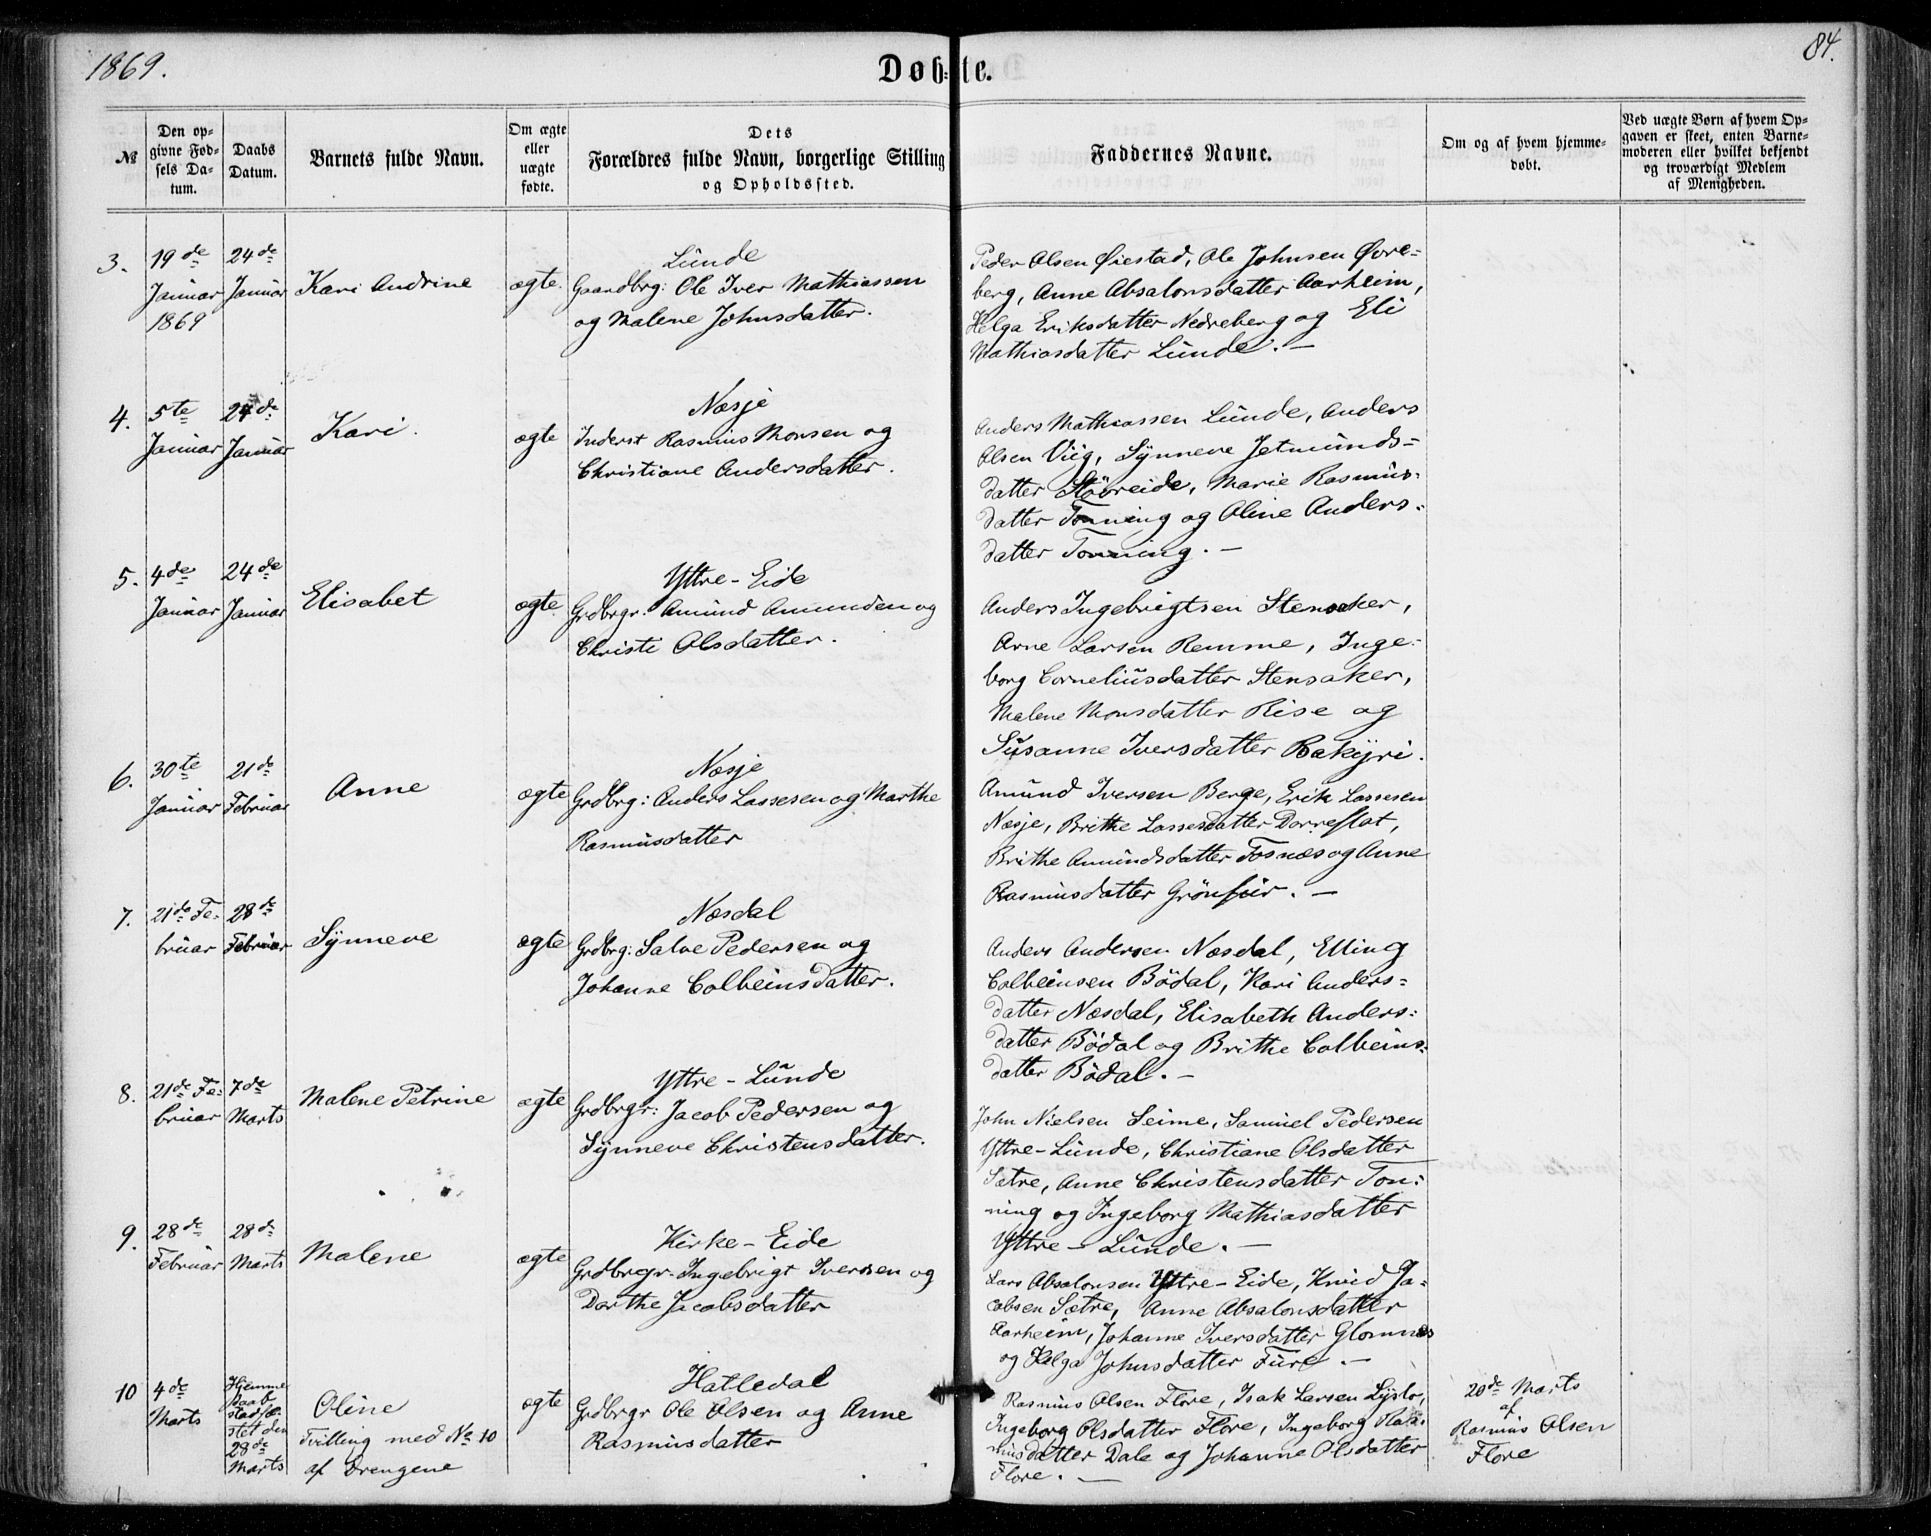 1869.
Døbte.
84.
№
Den op-
givne Fød-
sels Da-
tum.
Daabs
Datum.
Barnets fulde Navn.
Om ægte
eller
uægte
fødte.
Dets
Forældres fulde Navn, borgerlige Stilling
og Opholdssted.
Faddernes Navne.
Om og af hvem hjemme-
døbt.
Ved uægte Børn af hvem Op-
gaven er skeet, enten Barne-
moderen eller hvilket bekjendt
og troværdigt Medlem
af Menigheden.
3.
19de
Januar
1869
24de
Januar
Kari Andrine
ægte
Lunde
Gaardbrg: Ole Iver Mathiassen
og Malene Johnsdatter.
Peder Olsen Øiestad, Ole Johnsen Øvre-
berg, Anne Absalonsdatter Aarheim,
Helga Eriksdatter Nedreberg og Eli
Mathiasdatter Lunde. —
4.
5te
Januar
24de
Januar
Kari.
ægte
Næsje
Inderst Rasmus Monsen og
Christiane Andersdatter.
Anders Mathiassen Lunde, Anders
Olsen Viig, Synneve Jetmunds-
datter Støvreide, Marie Rasmus-
datter Tonning og Oline Anders-
datter Tonning. —
5.
4de
Januar
24de
Januar
Elisabet
ægte
Yttre-Eide
Grdbrgr: Amund Amunden og
Christi Olsdatter.
Anders Ingebrigtsen Stensaker,
Arne Larsen Remme, Inge-
borg Corneliusdatter Stensaker,
Malene Monsdatter Rise og
Susanne Iversdatter Rakyri.
6.
30te
Januar
21de
Februar
Anne
ægte
Næsje
Grdbrg: Anders Lassesen og Marthe
Rasmusdatter
Amund Iversen Berge, Erik Lassesen
Næsje, Brithe Lassesdatter Dorreflot,
Brithe Amundsdatter Tosnæs og Anne
Rasmusdatter Grønfur. —
7.
21de Fe-
bruar
28de
Februar
Synneve
ægte
Næsdal
Grdbrg: Salve Pedersen og
Johanne Colbeinsdatter.
Anders Andersen Næsdal, Elling
Colbeinsen Bødal, Kari Anders-
datter Næsdal, Elisabeth Anders-
datter Bødal og Brithe Colbeins-
datter Bødal. —
8.
21de Fe-
bruar
7de
Marts
Malene Petrine
ægte
Yttre-Lunde
Grdbrgr: Jacob Pedersen og
Synneve Christensdatter.
John Nielsen Seime, Samuel Pedersen
Yttre-Lunde, Christiane Olsdatter
Sætre, Anne Christensdatter Ton-
ning og Ingeborg Mathiasdatter
Yttre-Lunde. —
9.
28de
Februar
28de
Marts
Malene
ægte
Kirke-Eide
Grdbrgr. Ingebrigt Iversen og
Dorthe Jacobsdatter
Lars Absalonsen Yttre-Eide, Knud Ja-
cobsen Sætre, Anne Absalonsdatter
Aarheim, Johanne Iversdatter Glomnæs
og Helga Johnsdatter Fure. —
10
4de
Marts
Hjemme
daab
stadfæ-
stet den
28de
Marts
Oline
Tvilling med No 10
af Drengene
ægte
Hatledal
Grdbrgr Ole Olsen og Anne
Rasmusdatter
Rasmus Olsen Flore, Isak Larsen Lyslo,
Ingeborg Olsdatter Flore, Ingeborg Ras-
musdatter Dale og Johanne Olsdatter
Flore. —
20de Marts
af
Rasmus Olsen
Flore